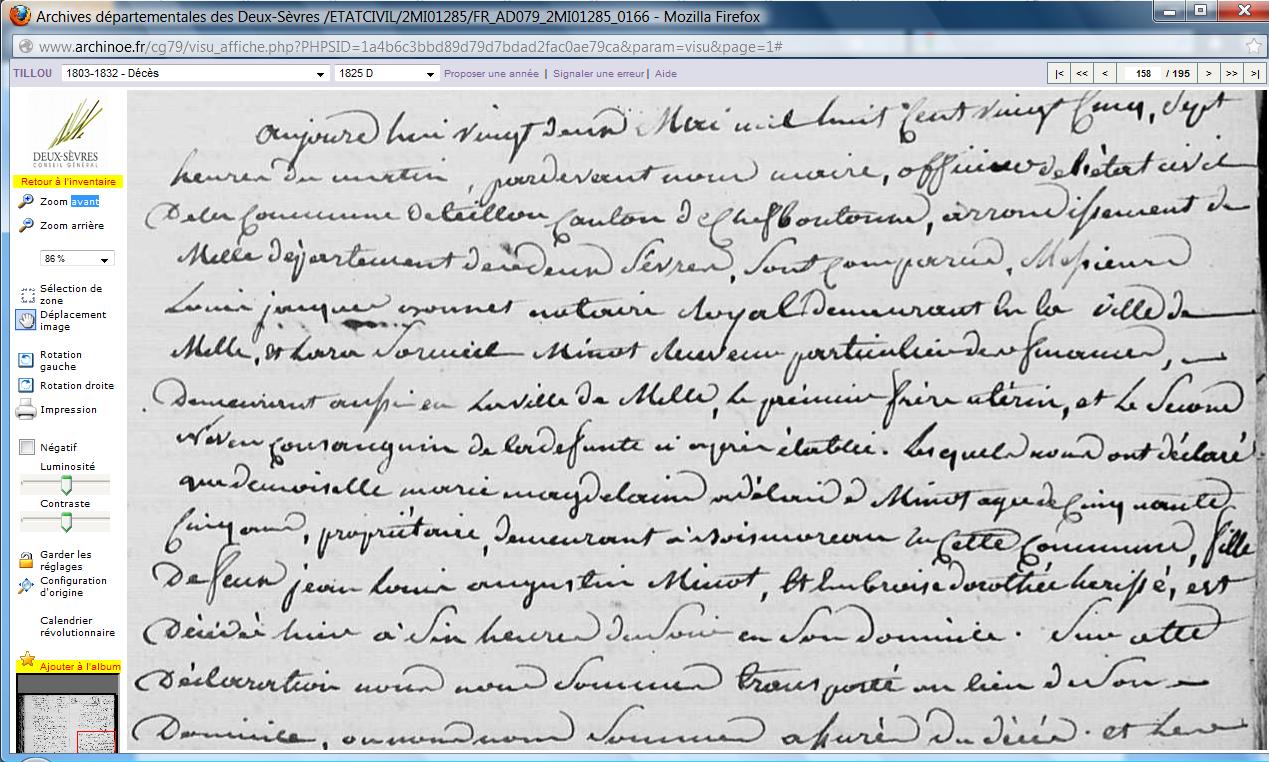 Archives départementales des Deux-Sèvres /ETATCIVIL/2MI01285/FR_AD079_2MI01285_0166 - Mozilla Firefox
www.archinoe.fr/cg79/visu_affiche.php?PHPSID=1a4b6c3bbd89d79d7bdad2fac0ae79ca&param=visu&page=1#
TILLOU 1803-1832 - Décès 1825 D Proposer une année | Signaler une erreur | Aide |< << < 158 / 195 > >> >|
DEUX-SÈVRES
CONSEIL GÉNÉRAL
Retour à l'inventaire
Zoom avant
Zoom arrière
86 %
Sélection de
zone
Déplacement
image
Rotation
gauche
Rotation droite
Impression
Négatif
Luminosité
Contraste
Garder les
réglages
Configuration
d'origine
Calendrier
révolutionnaire
Ajouter à l'album
aujourd'hui vingt deux Mai mil huit Cent vingt Cinq, Sept
heures du matin, pardevant nous maire, officier de l'état civil
De la Commune de teillou Canton de Chefboutonne, arrondissement de
Melle département des deux Sèvres, Sont Comparus, Messieurs
Louis jacques notaire Royal Demeurant En la ville de
Melle, et Minot Receveur particulier des finances,
Demeurant aussi en La ville de Melle, le premier frère utérin, et Le Second
Neveu Consanguin de la defunte ci après établie. Lesquels nous ont déclaré
que demoiselle marie magdelaine adélaide Minot agée de Cinquante
Cinq ans, propriétaire, demeurant à En Cette Commune, fille
De feux jean Louis augustin Minot, Et Enbroise dorothée herissé, est
Décédée hier à Six heures du Soir en Son domicile. Sur cette
Déclaration nous nous Sommes transporté au lieu de Son
Domicile, ou nous nous Sommes assurés du décès. et